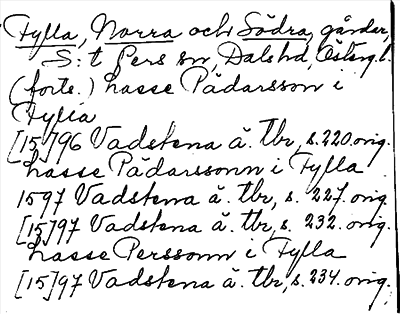 Fylla, Norra och Södra, gårdar,
S:t Pers sn, Dals hd, Österg. l.
(forts.) hasse Pädarsson i
Fylia
[15]96 Vadstena ä. tbr, s. 220 orig.
hasse Pädarsonn i Fylla
1597 Vadstena ä. tbr, s. 227. orig.
[15]97 Vadstena ä. tbr, s. 232. orig.
hasse Perssonn i Fylla
[15]97 Vadstena ä. tbr, s. 234. orig.